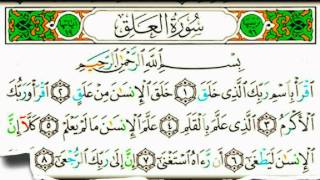 سُورَةُ العَلَقِ
بِسْمِ اللَّهِ الرَّحْمَٰنِ الرَّحِيمِ
اقْرَأْ بِاسْمِ رَبِّكَ الَّذِي خَلَقَ ١ خَلَقَ الْإِنْسَانَ مِنْ عَلَقٍ ٢ اقْرَأْ وَرَبُّكَ
الْأَكْرَمُ ٣ الَّذِي عَلَّمَ بِالْقَلَمِ ٤ عَلَّمَ الْإِنْسَانَ مَا لَمْ يَعْلَمْ ٥ كَلَّا إِنَّ
الْإِنْسَانَ لَيَطْغَىٰ ٦ أَنْ رَآهُ اسْتَغْنَىٰ ٧ إِنَّ إِلَىٰ رَبِّكَ الرُّجْعَىٰ ٨